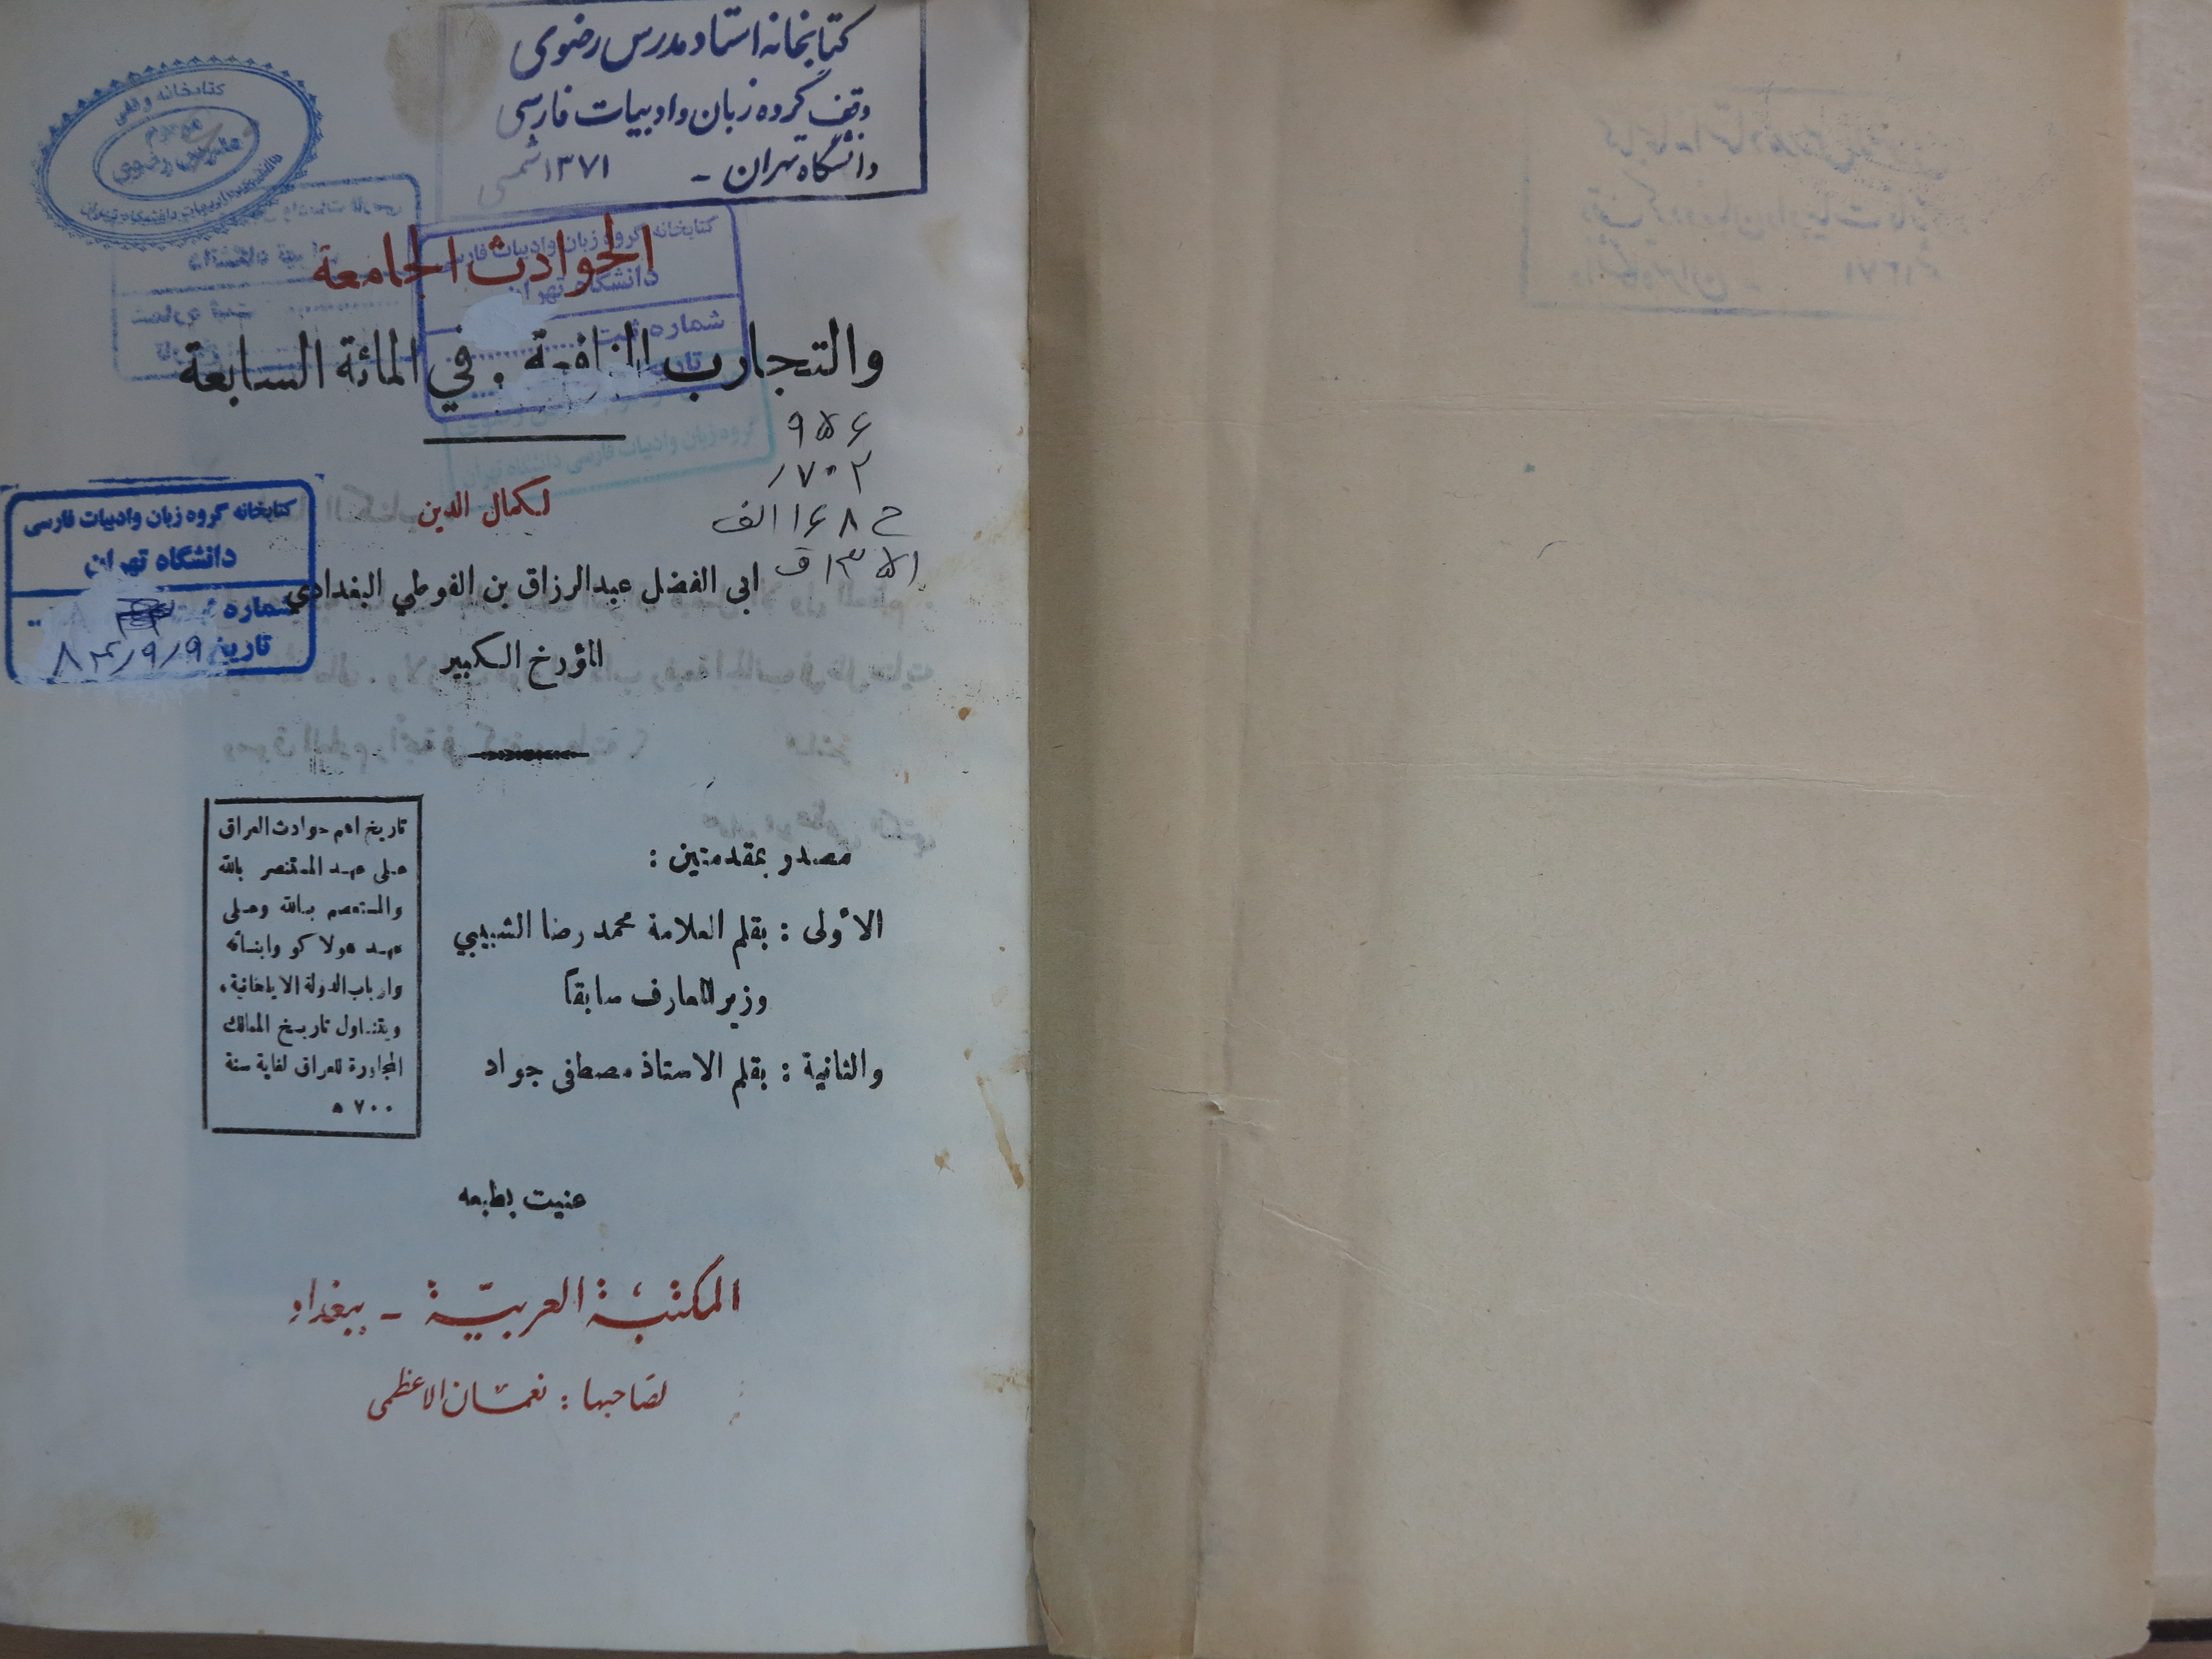 كتابخانه استاد مدرس رضوی
وقف گروه زبان و ادبیات فارسی
دانشگاه تهران - ۱۳۷۱ شمسی
کتابخانه وقفی
مرحوم
مدرس رضوی
کتابخانه گروه زبان وادبیات فارسی
دانشگاه تهران
شماره ثبت
الحوادث الجامعة
والتجارب النافعة . في المائة السابعة
گروه زبان وادبیات فارسی دانشگاه تهران
۹۵۶
/۷۰۲
ح ۱۶۸ الف
۱۳۵۱ ق
لكمال الدين
ابى الفضل عبدالرزاق بن الفوطي البغدادي
المؤرخ الكبير
کتابخانه گروه زبان وادبیات فارسی
دانشگاه تهران
شماره
تاریخ ۸۲/۹/۹
مصدر بمقدمتين :
الأولى : بقلم العلامة محمد رضا الشبيبي
وزير المعارف سابقاً
والثانية : بقلم الاستاذ مصطفى جواد
تاريخ اهم حوادث العراق
على عهد المستنصر بالله
والمستعصم بالله وعلى
عهد هولاكو وابنائه
وارباب الدولة الايلخانية،
ويتناول تاريخ الممالك
المجاورة للعراق لغاية سنة
٧٠٠ ه
عنيت بطبعه
المكتبة العربيّة - ببغداد
لصاحبها : نعمان الاعظمى